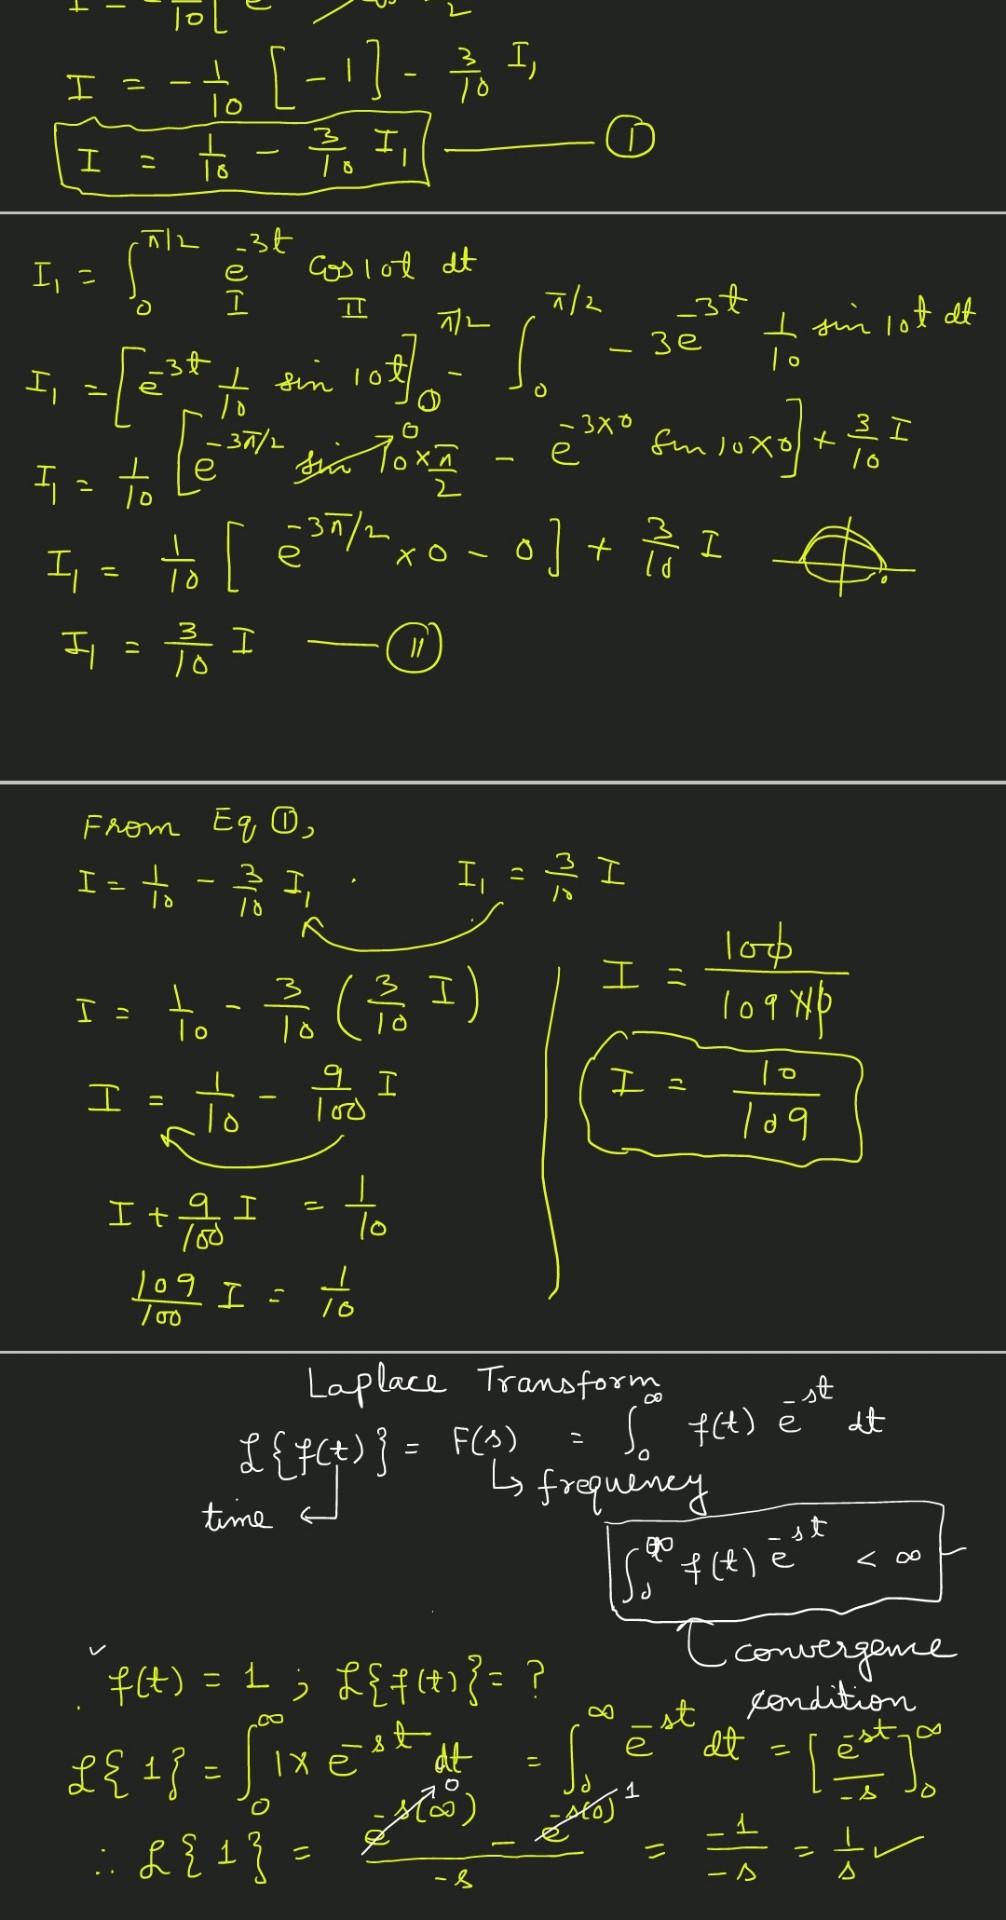 I = -1/10 [-1] - 3/10 I₁
I = 1/10 - 3/10 I₁ —— ①
I₁ = ∫₀^(π/2) e^(-3t) cos10t dt
I II
I₁ = [e^(-3t) 1/10 sin 10t]₀^(π/2) - ∫₀^(π/2) -3e^(-3t) 1/10 sin 10t dt
I₁ = 1/10 [e^(-3π/2) sin 10×π/2 0 - e^(-3×0) sin 10×0] + 3/10 I
I₁ = 1/10 [e^(-3π/2) ×0 - 0] + 3/10 I
I₁ = 3/10 I —— ⑪
From Eq ①,
I = 1/10 - 3/10 I₁ . I₁ = 3/10 I
I = 1/10 - 3/10 (3/10 I)
I = 1/10 - 9/100 I
I + 9/100 I = 1/10
109/100 I = 1/10
I = 100/(109×10)
I = 10/109
Laplace Transform
ℒ{f(t)} = F(s) = ∫₀^∞ f(t) e^(-st) dt
time frequency
∫₀^∞ f(t) e^(-st) < ∞
convergence
condition
f(t) = 1 ; ℒ{f(t)} = ?
ℒ{1} = ∫₀^∞ 1× e^(-st) dt = ∫₀^∞ e^(-st) dt = [e^(-st)/-s]₀^∞
∴ ℒ{1} = (e^(-s(∞)) 0 - e^(-s(0)) 1)/-s = -1/-s = 1/s ✓